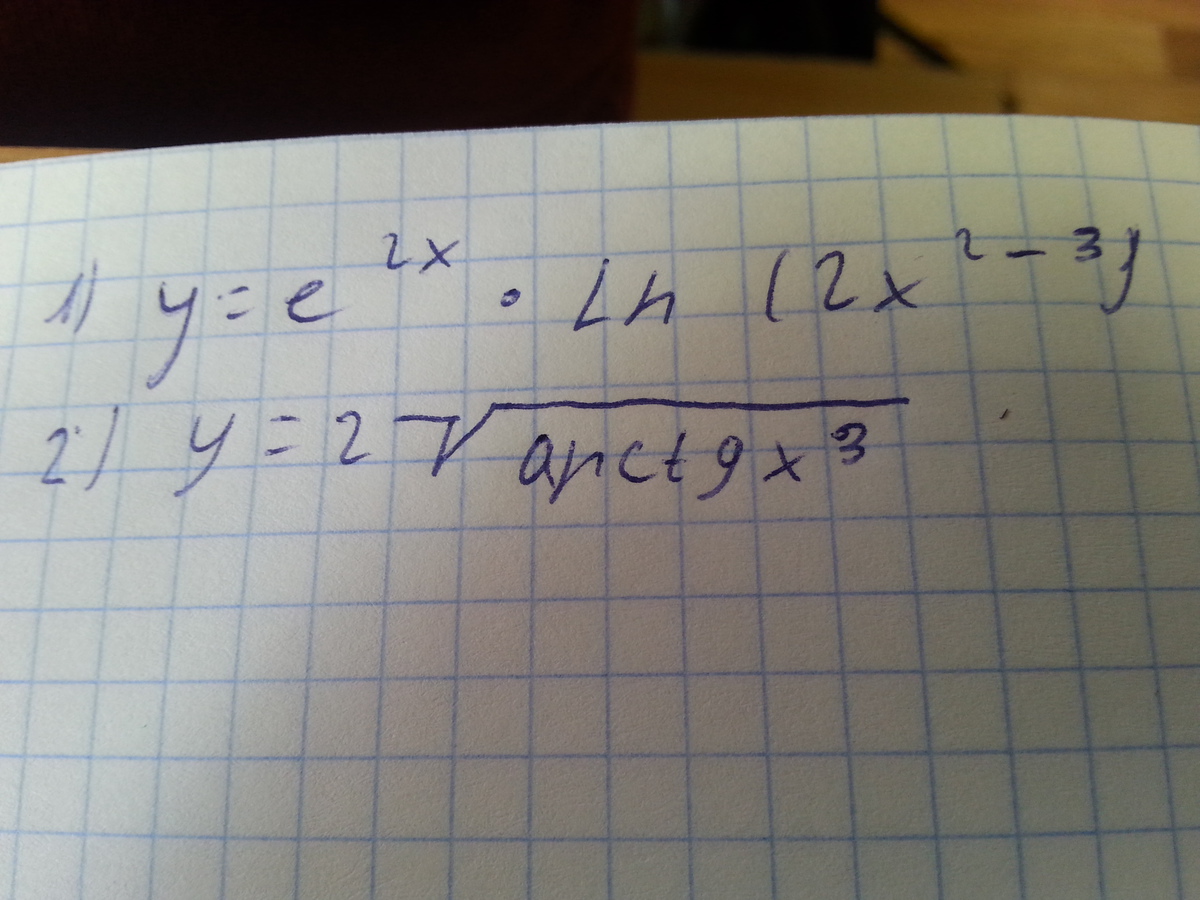 1) y = e^2x · ln (2x^2 - 3)
2) y = 2 √arctgx^3